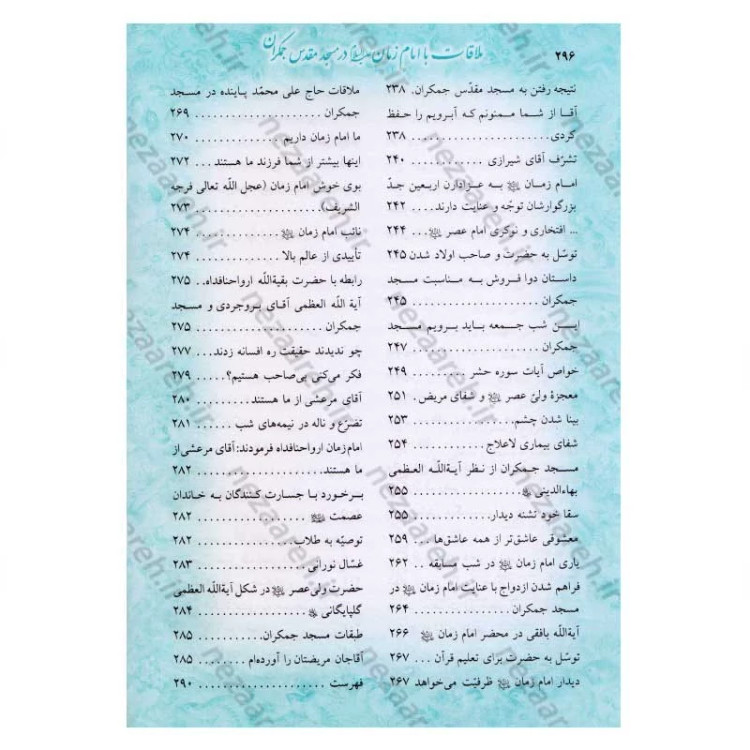 ۲۹۶
ملاقات با امام زمان در مسجد مقدس جمکران
نتیجه رفتن به مسجد مقدّس جمکران. ۲۳۸
آقا از شما ممنونم که آبرویم را حفظ
کردی. . . . . . . . . . . . . . . . . . . ۲۳۸
تشرّف آقای شیرازی . . . . . . . . . . ۲۴۰
امام زمان به عزاداران اربعین جدّ
بزرگوارشان توجّه و عنایت دارند. . . . ۲۴۲
... افتخاری و نوکری امام عصر ... ۲۴۴
توسّل به حضرت و صاحب اولاد شدن ۲۴۵
داستان دوا فروش به مناسبت مسجد
جمکران . . . . . . . . . . . . . . . . . ۲۴۵
این شب جمعه باید برویم مسجد
جمکران . . . . . . . . . . . . . . . . . ۲۴۷
خواص آیات سوره حشر . . . . . . . . ۲۴۹
معجزۀ ولیّ عصر و شفای مریض . ۲۵۱
بینا شدن چشم. . . . . . . . . . . . . . ۲۵۳
شفای بیماری لاعلاج . . . . . . . . . . ۲۵۴
مسجد جمکران از نظر آیةاللّه العظمی
بهاءالدینی . . . . . . . . . . . . . . . ۲۵۵
سقا خود تشنه دیدار. . . . . . . . . . . ۲۵۵
معشوقی عاشق‌تر از همه عاشق‌ها. . . ۲۵۹
یاری امام زمان در شب مسابقه . . ۲۶۲
فراهم شدن ازدواج با عنایت امام زمان در
مسجد جمکران . . . . . . . . . . . . . ۲۶۴
آیةاللّه بافقی در محضر امام زمان ۲۶۶
توسّل به حضرت برای تعلیم قرآن . . . ۲۶۷
دیدار امام زمان ظرفیّت می‌خواهد ۲۶۷
ملاقات حاج علی محمّد پاینده در مسجد
جمکران . . . . . . . . . . . . . . . . . ۲۶۹
ما امام زمان داریم. . . . . . . . . . . . ۲۷۰
اینها بیشتر از شما فرزند ما هستند . . . ۲۷۲
بوی خوش امام زمان (عجل اللّه تعالی فرجه
الشریف). . . . . . . . . . . . . . . . . ۲۷۳
نائب امام زمان . . . . . . . . . . . . ۲۷۴
تأییدی از عالم بالا . . . . . . . . . . . . ۲۷۴
رابطه با حضرت بقیةاللّه ارواحنافداه. . ۲۷۵
آیة اللّه العظمی آقای بروجردی و مسجد
جمکران . . . . . . . . . . . . . . . . . ۲۷۵
چو ندیدند حقیقت ره افسانه زدند. . . . ۲۷۷
فکر می‌کنی بی‌صاحب هستیم؟. . . . . ۲۷۹
آقای مرعشی از ما هستند. . . . . . . . ۲۸۰
تضرّع و ناله در نیمه‌های شب . . . . . ۲۸۱
امام زمان ارواحنافداه فرمودند: آقای مرعشی از
ما هستند. . . . . . . . . . . . . . . . . ۲۸۲
برخورد با جسارت کنندگان به خاندان
عصمت . . . . . . . . . . . . . . . . . ۲۸۲
توصیّه به طلاب. . . . . . . . . . . . . ۲۸۲
غسّال نورانی . . . . . . . . . . . . . . ۲۸۳
حضرت ولی‌عصر در شکل آیةاللّه العظمی
گلپایگانی . . . . . . . . . . . . . . . ۲۸۴
طبقات مسجد جمکران. . . . . . . . . . ۲۸۵
آقاجان مریضتان را آورده‌ام . . . . . . . ۲۸۵
فهرست . . . . . . . . . . . . . . . . . ۲۹۰
nezaareh.ir